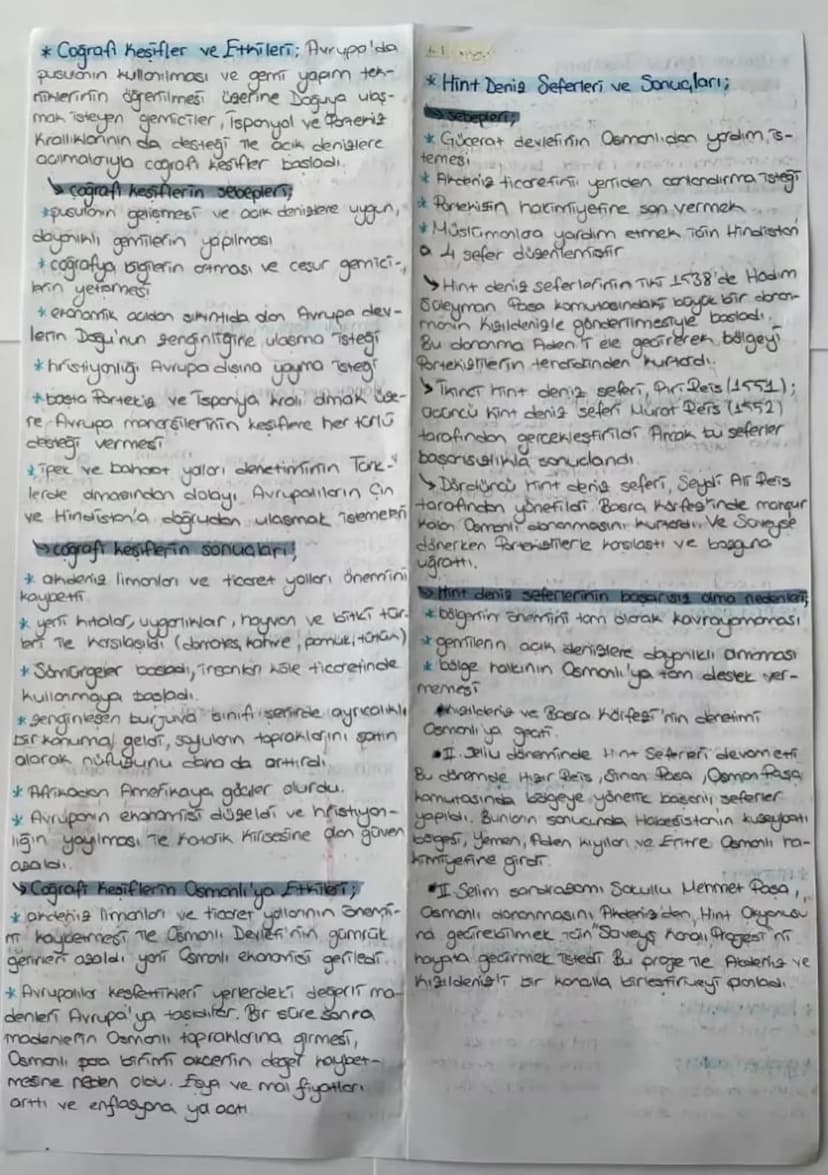 * Coğrafi Keşifler ve Etkileri; Avrupa'da
pusulanın kullanılması ve gemi yapım tek-
niklerinin öğrenilmesi üzerine Doğuya ulaş-
mak isteyen gemiciler, İspanyol ve Portekiz
Krallıklarının da desteği ile açık denizlere
açılmalarıyla coğrafi keşifler başladı.
↳ coğrafi keşiflerin sebepleri;
* pusulanın gelişmesi ve açık denizlere uygun,
dayanıklı gemilerin yapılması
* coğrafya bilgilerin artması ve cesur gemici-
lerin yetişmesi
* ekonomik açıdan sıkıntıda olan Avrupa dev-
lerin Doğu'nun zenginliğine ulaşma isteği
* hristiyonlığı Avrupa dışına yayma isteği
* başta Portekiz ve İspanya kralı olmak üze-
re Avrupa monarşilerinin keşiflere her türlü
desteği vermesi
* İpek ve baharat yolları denetiminin Türk-
lerde olmasından dolayı Avrupalıların Çin
ve Hindistan'a doğrudan ulaşmak istemeleri
↳ coğrafi keşiflerin sonuçları;
* akdeniz limanları ve ticaret yolları önemini
kaybetti
* yeni kıtalar, uygarlıklar, hayvan ve bitki tür-
leri ile karşılaşıldı (domates, kahve, pamuk, tütün)
* Sömürgeler başladı, insanları köle ticaretinde
kullanmaya başladı.
* zenginleşen burjuva sınıfı şehirde ayrıcalıklı
bir konuma geldi, soyluların topraklarını satın
alarak nüfuzunu daha da arttırdı.
* Afrikadan Amerikaya göçler olurdu.
* Avrupanın ekonomisi düzeldi ve hristiyon-
lığın yayılması ile Katolik Kilisesine olan güven
azaldı.
↳ Coğrafi Keşiflerin Osmanlı'ya Etkileri;
* akdeniz limanları ve ticaret yollarının önemi-
ni kaybetmesi ile Osmanlı Devleti'nin gümrük
gelirleri azaldı yani Osmanlı ekonomisi geriledi.
* Avrupalılar keşfettikleri yerlerdeki değerli ma-
denleri Avrupa'ya taşıdılar. Bir süre sonra
madenlerin Osmanlı topraklarına girmesi,
Osmanlı para birimi akçenin değer kaybet-
mesine neden oldu. Eşya ve mal fiyatları
arttı ve enflasyona yol açtı
* Hint Deniz Seferleri ve Sonuçları;
↳ sebepleri;
* Gücerat devletinin Osmanlıdan yardım is-
temesi
* Akdeniz ticaretini yeniden canlandırma isteği
* Portekizin hakimiyetine son vermek
* Müslümanlara yardım etmek için Hindistan
a 4 sefer düzenlemiştir
↳ Hint deniz seferlerinin ilki 1538'de Hadım
Süleyman Paşa komutasındaki büyük bir donan-
manın Kızıldenizle gönderilmesiyle başladı.
Bu donanma Aden'i ele geçirerek bölgeyi
Portekizlilerin tehdidinden kurtardı.
↳ İkinci hint deniz seferi, Piri Reis (1551);
üçüncü hint deniz seferi Murat Reis (1552)
tarafından gerçekleştirildi Ancak bu seferler
başarısızlıkla sonuçlandı.
↳ Dördüncü hint deniz seferi, Seydi Ali Reis
tarafından yönetildi. Basra Körfezinde mahsur
kalan Osmanlı donanmasını kurtardı. Ve Süveyşe
dönerken Portekizlilerle karşılaştı ve bozguna
uğrattı.
↳ Hint deniz seferlerinin başarısız olma nedenleri;
* bölgenin önemini tam olarak kavrayamaması
* gemilerin açık denizlere dayanıklı olmaması
* bölge halkının Osmanlı'ya tam destek ver-
memesi
• Kızıldeniz ve Basra Körfezi'nin denetimi
Osmanlı'ya geçti.
• II. Selim döneminde Hint Seferleri devam etti
Bu dönemde Hızır Reis, Sinan Paşa, Osman Paşa
komutasında bölgeye yönelik başarılı seferler
yapıldı. Bunların sonucunda Habeşistanın kuzeybatı
bölgesi, Yemen, Aden kıyıları ve Eritre Osmanlı ha-
kimiyetine girdi.
• II. Selim sandrazamı Sokullu Mehmet Paşa,
Osmanlı donanmasını Akdeniz'den, Hint Okyanusu
na geçirebilmek için "Süveyş Kanalı Projesi"ni
hayata geçirmek istedi Bu proje ile Akdeniz ve
Kızıldeniz'i bir kanalla birleştirmeyi planladı.